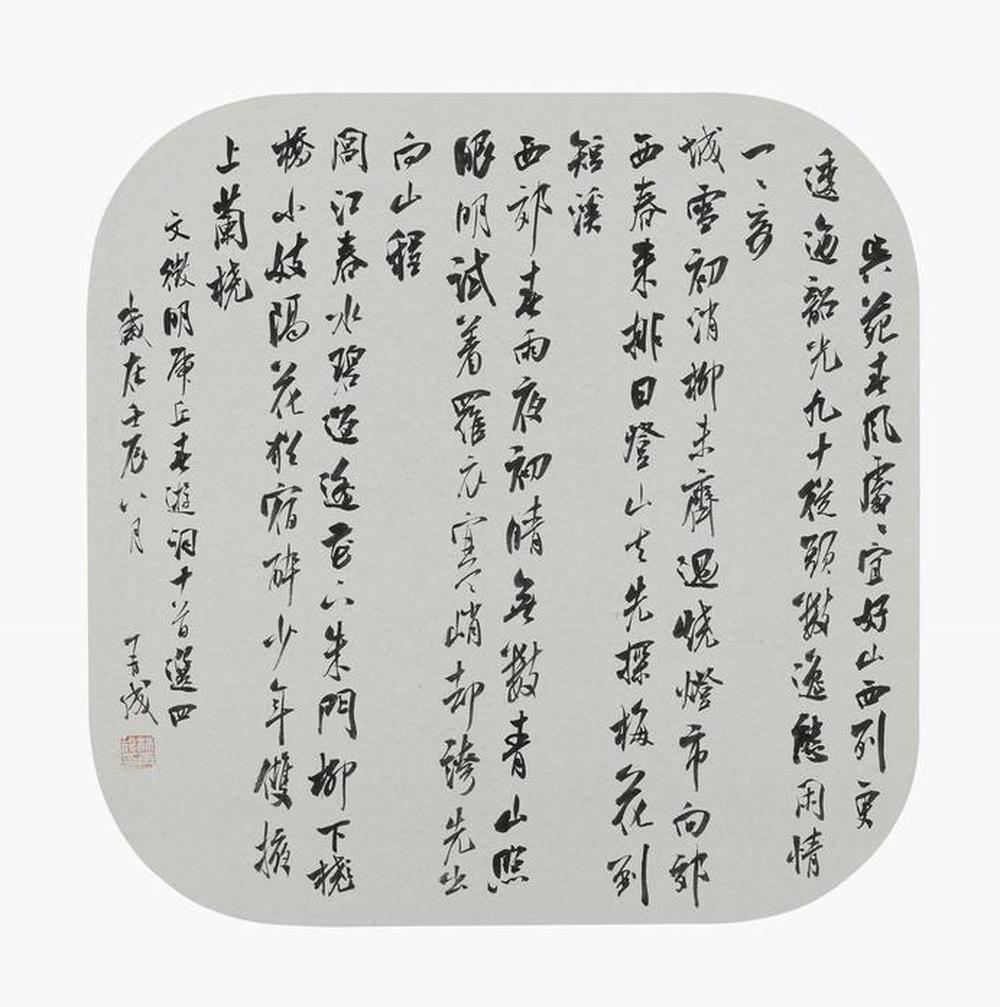 吳苑春風處〻宜好山西列更
透迤韶光九十從頭數逸態閑情
一〻奇
城雪初消柳未齊過燒燈市向郊
西春來排日登山去先探梅花到
短溪
西郊春雨夜初晴無數青山照
眼明試着羅衣寒〻峭却誇先出
向山程
閶江春水碧迢遙六朱門柳下橈
橋小妓隔花猶宿醉少年雙掖
上蘭橈
文徵明虎丘春遊詞十首選四
歲在壬辰八月 成